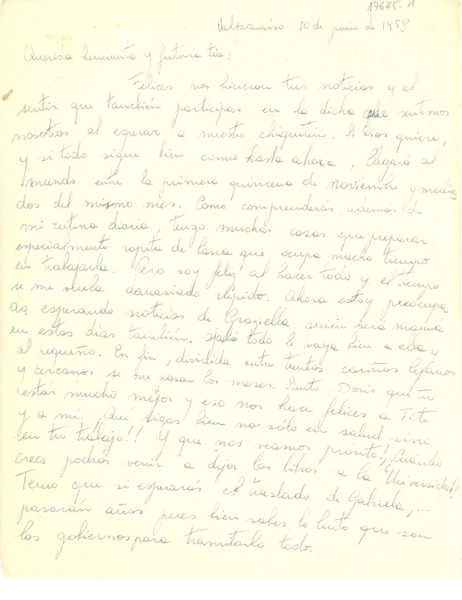 17645.1
Valparaíso 10 de junio de 1958
Querida hermanita y futura tía:
Felices nos hicieron tus noticias y el
sentir que también participas en la dicha que sentimos
nosotros al esperar a nuestro chiquitín. Si Dios quiere,
y si todo sigue bien como hasta ahora, llegará al
mundo entre la primera quincena de noviembre y media-
dos del mismo mes. Como comprenderás, además de
mi rutina diaria, tengo muchas cosas que preparar
especialmente ropita de lana que ocupa mucho tiempo
en trabajarla. Pero soy feliz al hacer todo y el tiempo
se me vuela demasiado rápido. Ahora estoy preocupa-
da, esperando noticias de Graziella, quien será mamá
en estos días también. Ojalá todo le vaya bien a ella y
al pequeño. En fin, dividida entre tantos cariños lejanos
y cercanos se me pasan los meses. Siento, Doris que tú
estás mucho mejor y eso nos hace felices a Tito
y a mí. ¡Qué sigas bien no sólo en salud sino
en tu trabajo!! Y que nos veamos pronto! ¿Cuándo
crees podrás venir a dejar los libros a la Universidad?
Temo que si esperarás el traslado de Gabriela,...
pasarán años pues bien sabes lo lento que son
los gobiernos para tramitarlo todo.